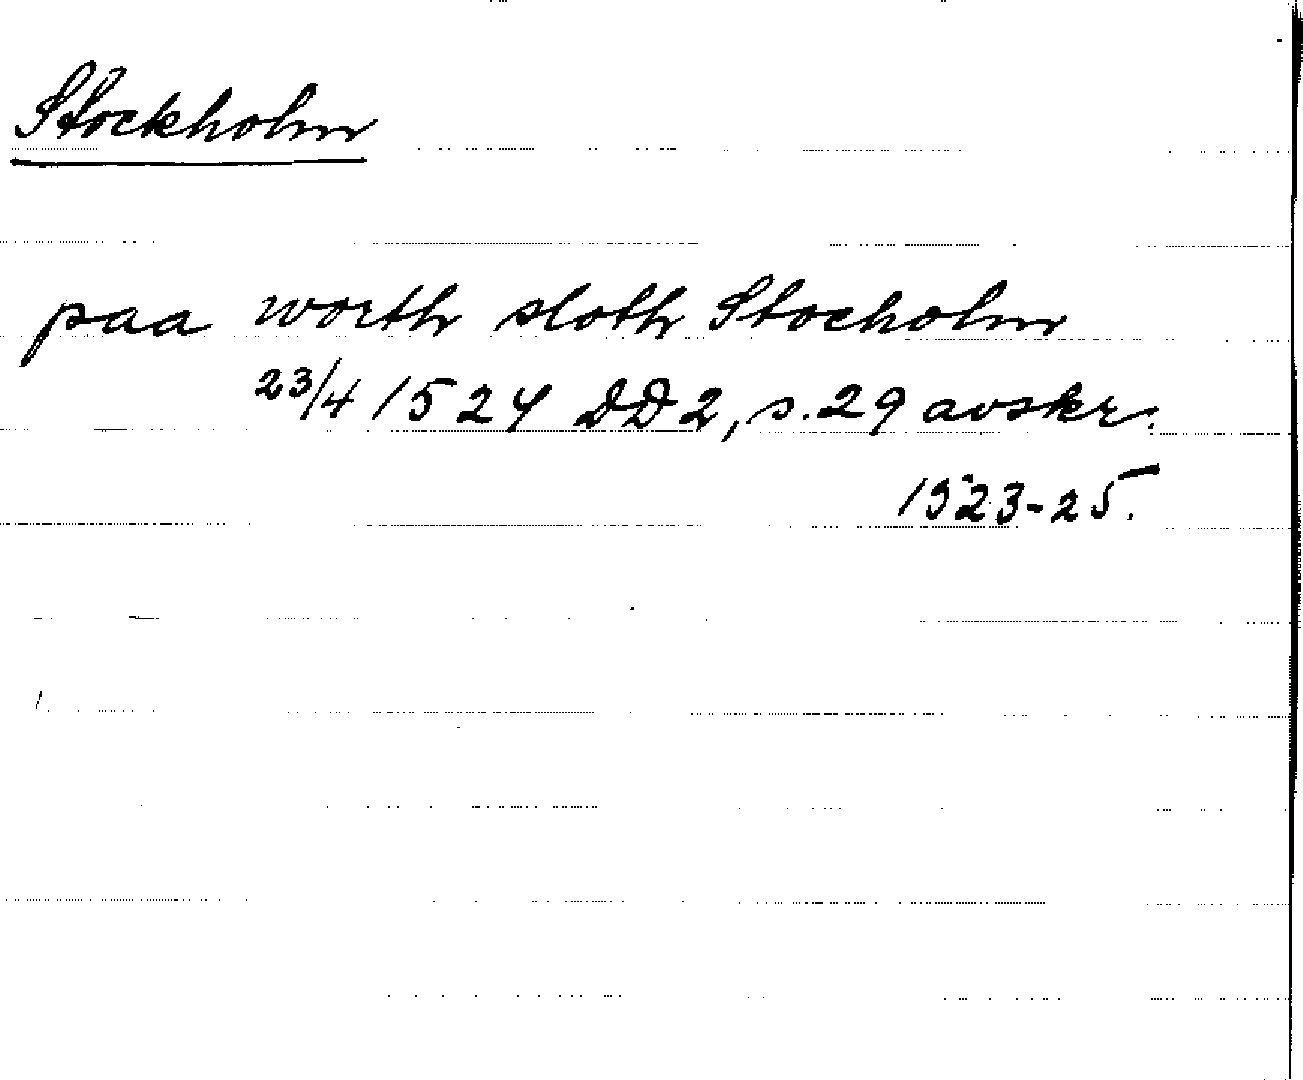 Stockholm
paa worth sloth Stocholm
23/4 1524 DD2, s. 29 avskr.
1523-25.